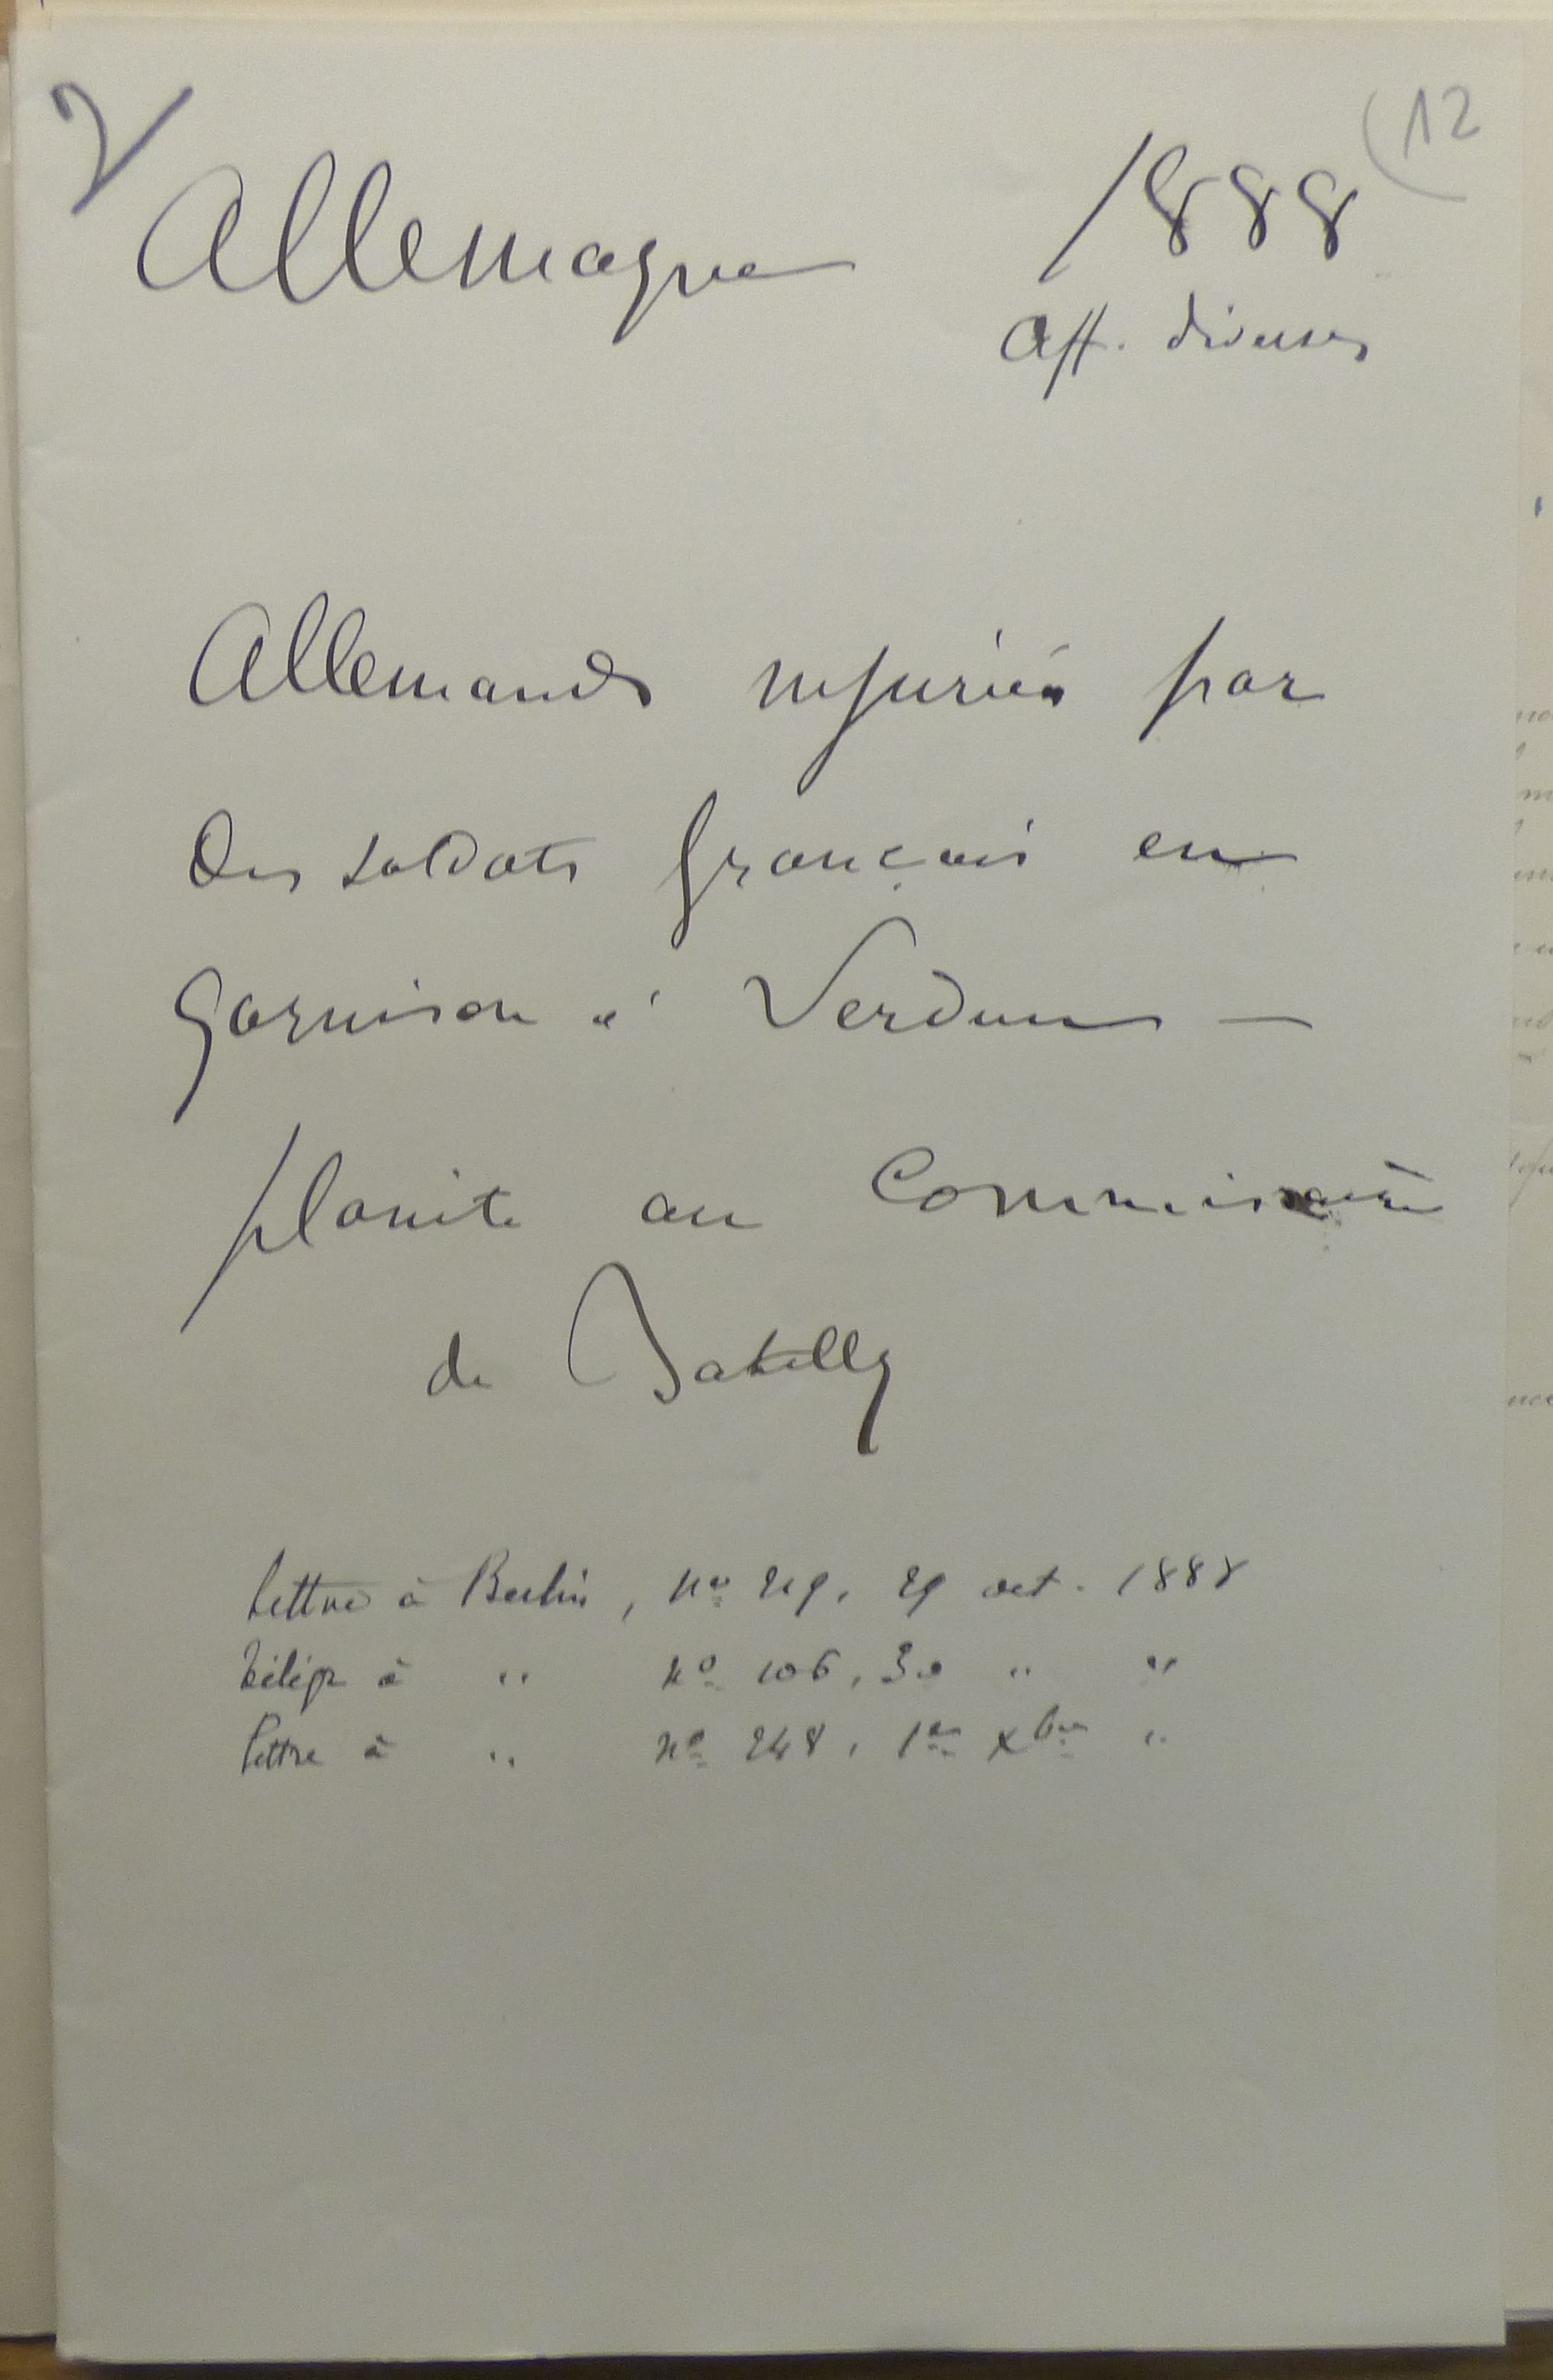 2/
(12
Allemagne 1888
Aff. diverses
Allemands injuriés par
des soldats français en
garnison à Verdun —
plainte au Commissaire
de Batilly
Lettre à Berlin, No 219, 29 oct. 1888
télégr à " No 106, 30 " "
lettre à " No 248, 1er Xbre "